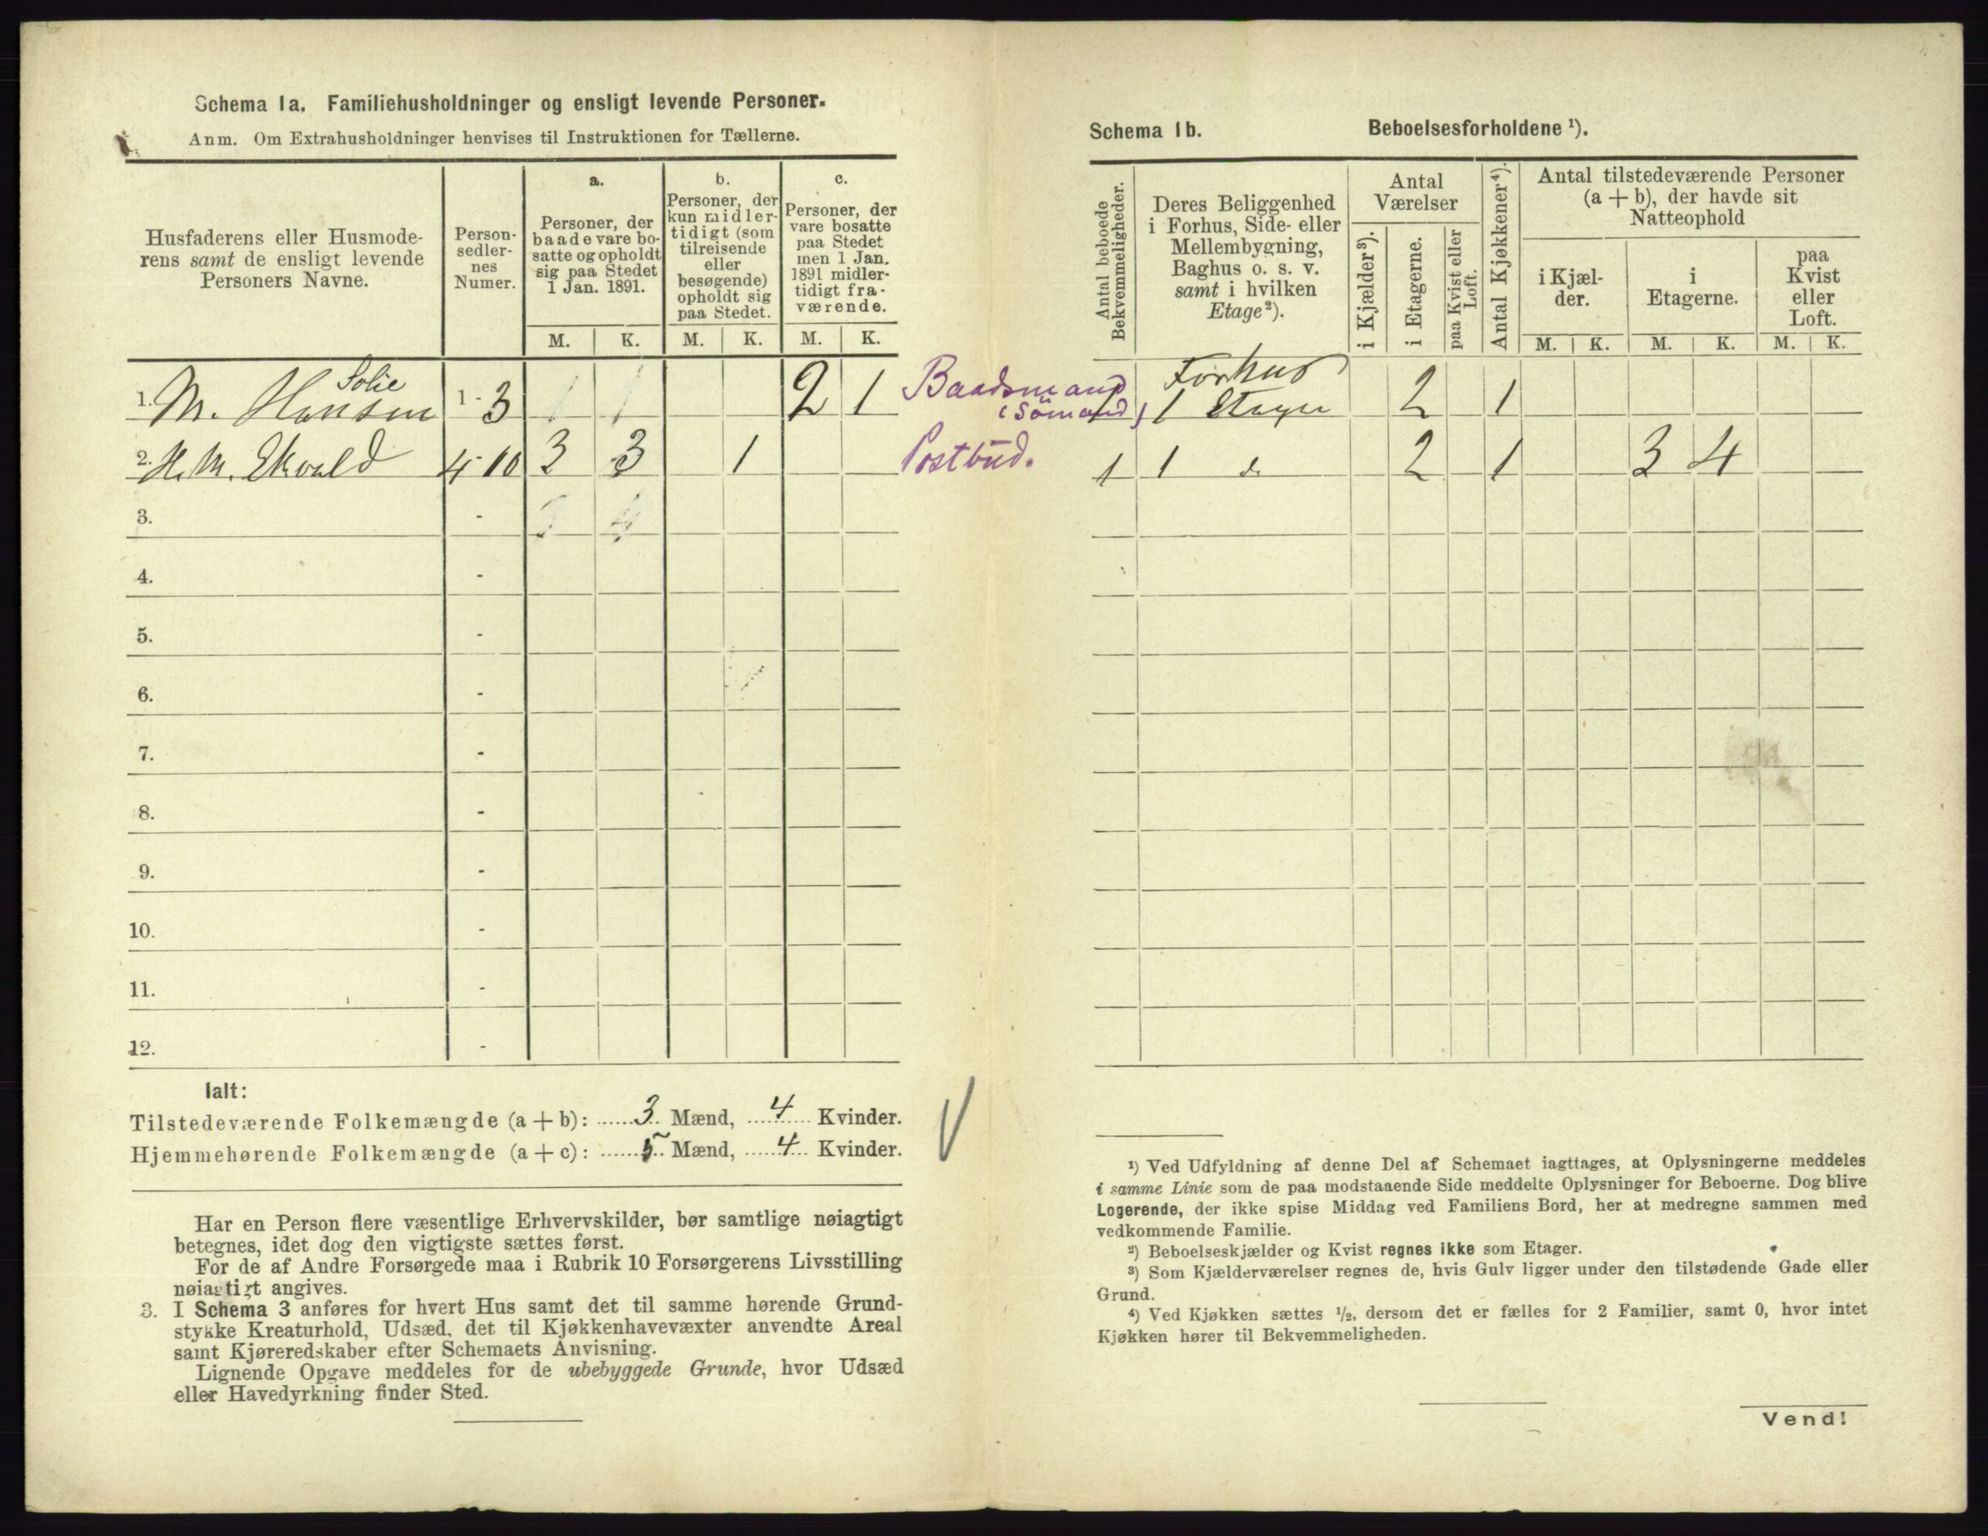 Schema 1a. Familiehusholdninger og ensligt levende Personer.
Anm. Om Extrahusholdninger henvises til Instruktionen for Tællerne.
Husfaderens eller Husmode-
rens samt de ensligt levende
Personers Navne.
Person-
sedler-
nes
Numer.
a.
Personer, der
baade vare bo-
satte og opholdt
sig paa Stedet
1 Jan. 1891.
b.
Personer, der
kun midler-
tidigt (som
tilreisende
eller
besøgende)
opholdt sig
paa Stedet.
c.
Personer, der
vare bosatte
paa Stedet
men 1 Jan.
1891 midler-
tidigt fra-
værende.
M. K. M. K. M. K.
Solie
1. M. Hansen 1 - 3 1 1 2 1 Baadsmand
(Sömand)
2. H. M. Ekvald 4 - 10 3 3 1 Postbud.
3. - 3 4
4. -
5. -
6. -
7. -
8. -
9. -
10. -
11. -
12. -
Ialt:
Tilstedeværende Folkemængde (a + b): 3 Mænd, 4 Kvinder.
Hjemmehørende Folkemængde (a + c): 5 Mænd, 4 Kvinder.
Har en Person flere væsentlige Erhvervskilder, bør samtlige nøiagtigt
betegnes, idet dog den vigtigste sættes først.
For de af Andre Forsørgede maa i Rubrik 10 Forsørgerens Livsstilling
nøiagtigt angives.
3. I Schema 3 anføres for hvert Hus samt det til samme hørende Grund-
stykke Kreaturhold, Udsæd, det til Kjøkkenhavevæxter anvendte Areal
samt Kjøreredskaber efter Schemaets Anvisning.
Lignende Opgave meddeles for de ubebyggede Grunde, hvor Udsæd
eller Havedyrkning finder Sted.
Schema 1b. Beboelsesforholdene ¹).
Antal beboede
Bekvemmeligheder.
Deres Beliggenhed
i Forhus, Side- eller
Mellembygning,
Baghus o. s. v.
samt i hvilken
Etage²).
Antal
Værelser
i Kjælder³).
i Etagerne.
paa Kvist eller
Loft.
Antal Kjøkkener⁴).
Antal tilstedeværende Personer
(a + b), der havde sit
Natteophold
i Kjæl-
der.
i
Etagerne.
paa
Kvist
eller
Loft.
M. K. M. K. M. K.
Forhus
1 1 Etager 2 1
1 1 d 2 1 3 4
¹) Ved Udfyldning af denne Del af Schemaet iagttages, at Oplysningerne meddeles
i samme Linie som de paa modstaaende Side meddelte Oplysninger for Beboerne. Dog blive
Logerende, der ikke spise Middag ved Familiens Bord, her at medregne sammen med
vedkommende Familie.
²) Beboelseskjælder og Kvist regnes ikke som Etager.
³) Som Kjælderværelser regnes de, hvis Gulv ligger under den tilstødende Gade eller
Grund.
⁴) Ved Kjøkken sættes ½, dersom det er fælles for 2 Familier, samt 0, hvor intet
Kjøkken hører til Bekvemmeligheden.
Vend!